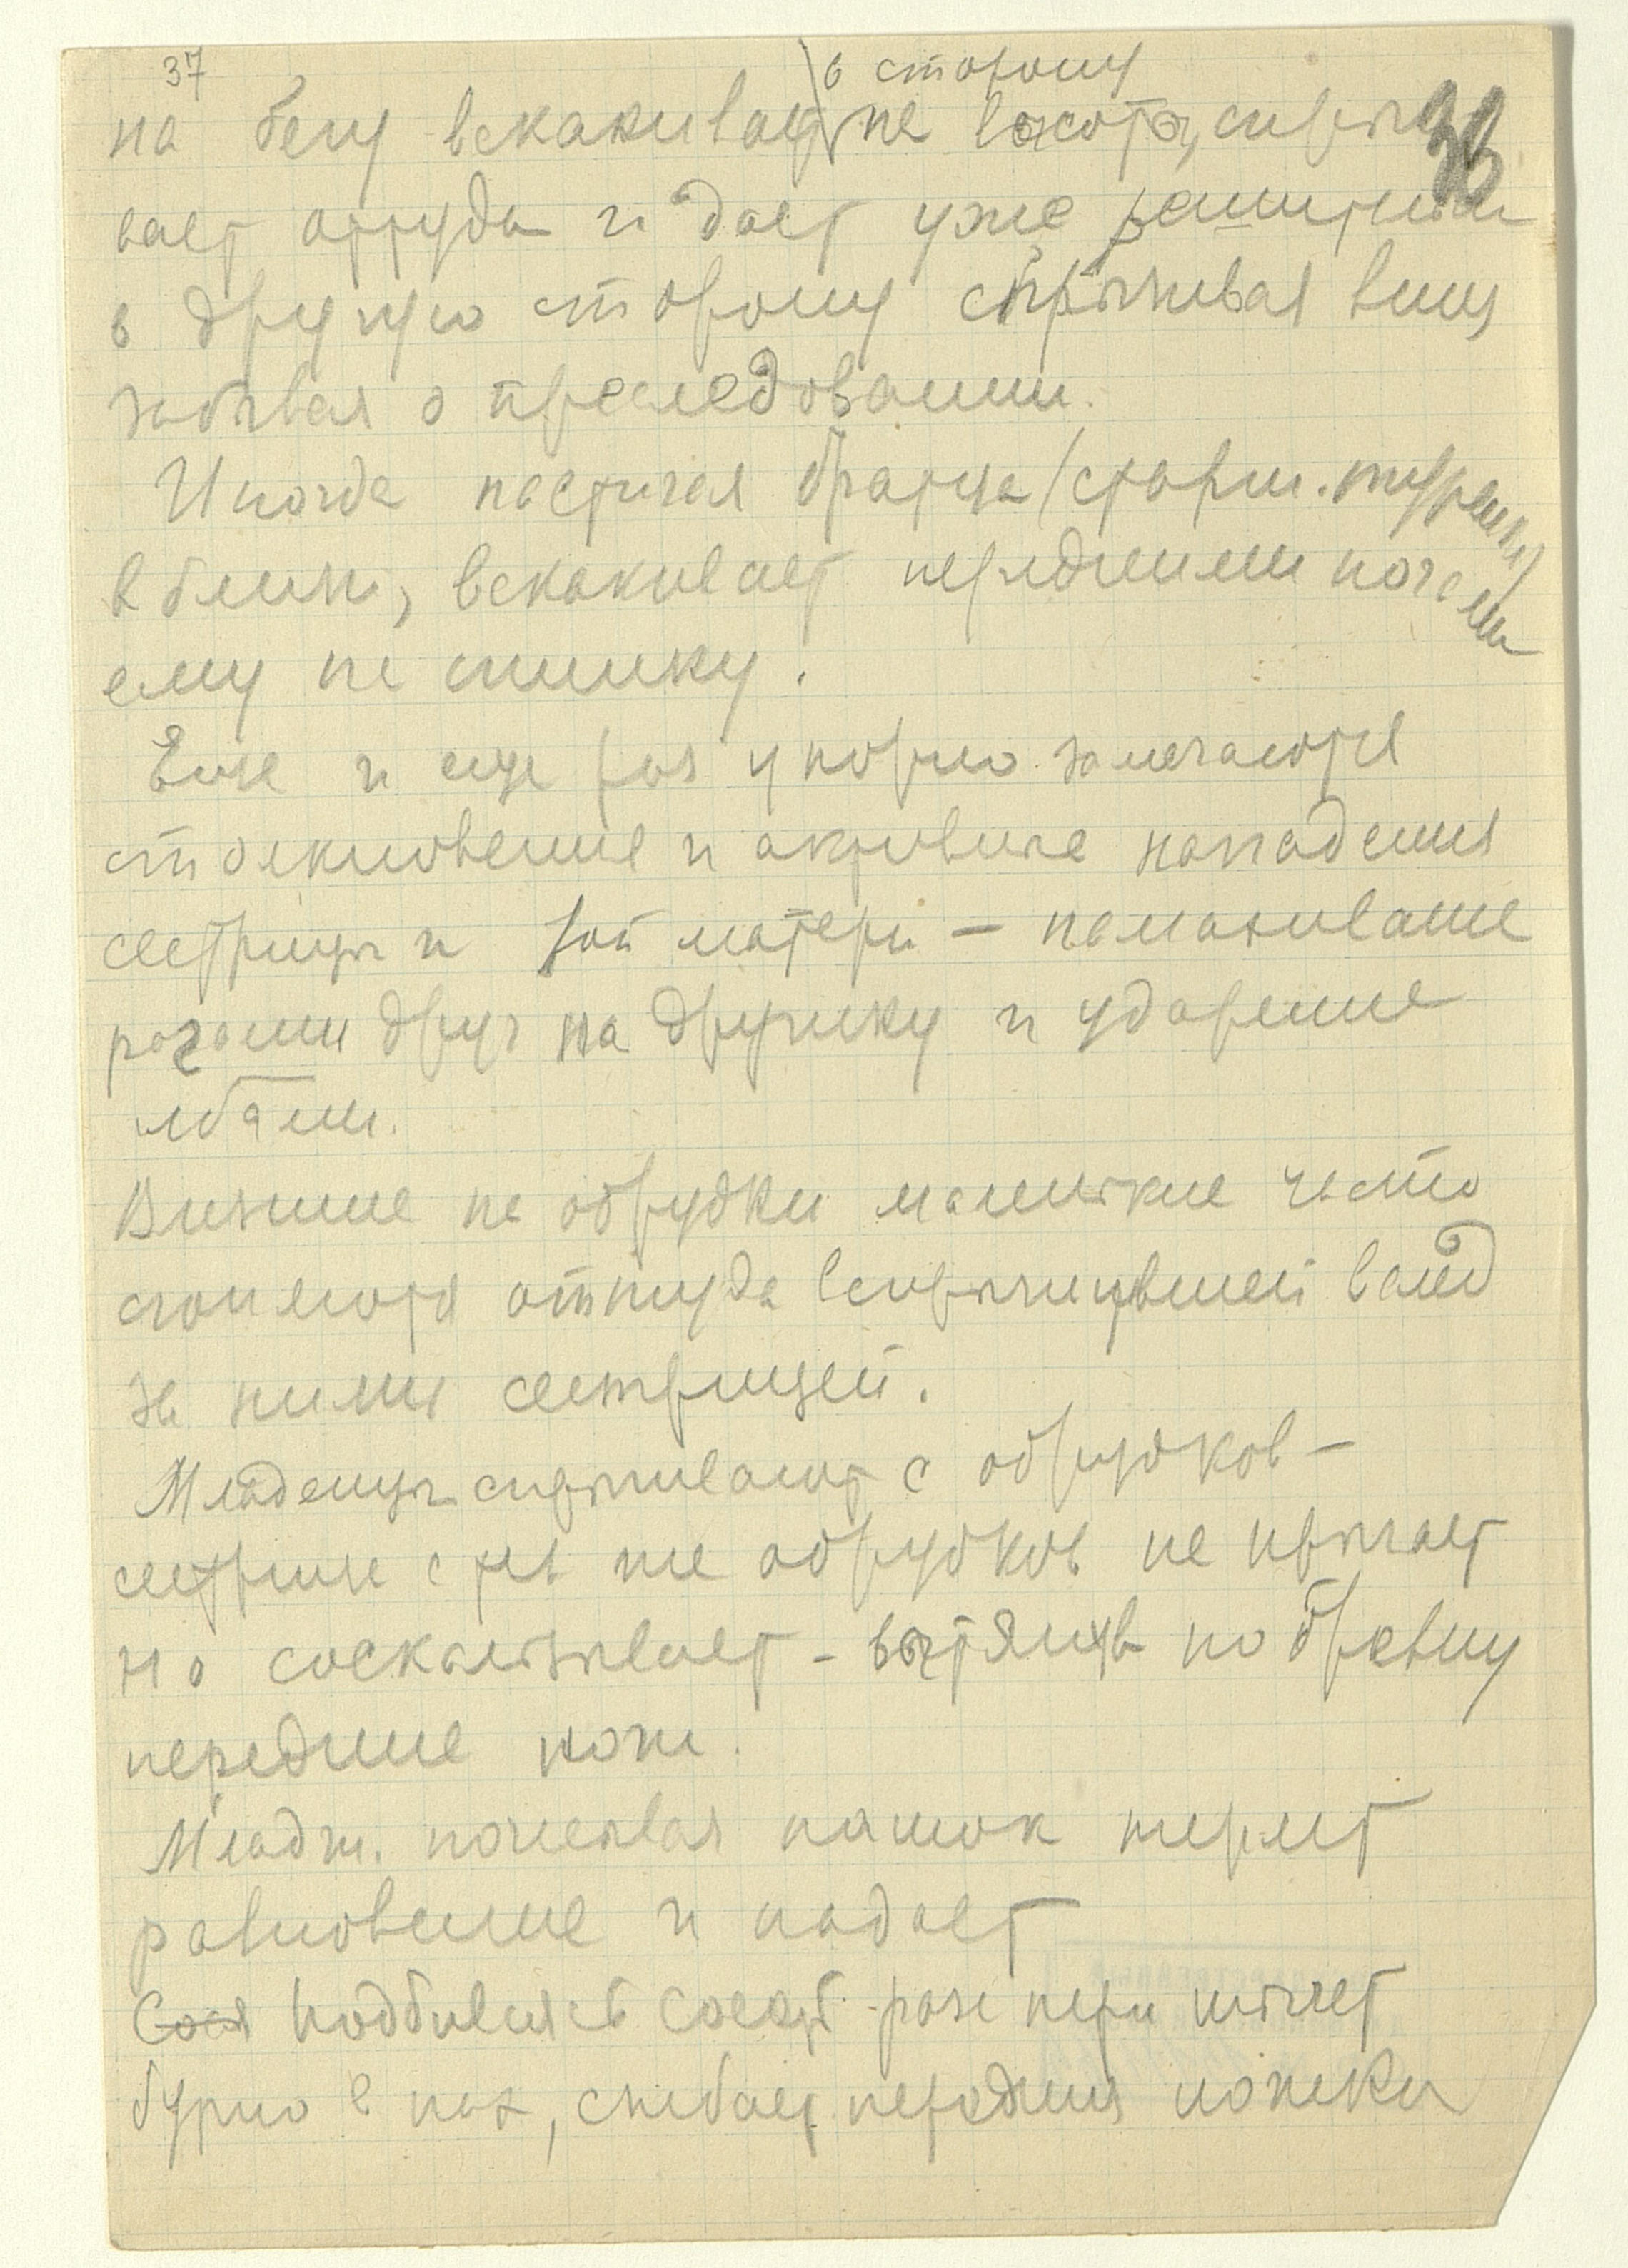 37
в сторону
на бегу вскакивает на высоты, спрыги
вает оттуда и дает уже
в другую сторону спрыгивая вниз
забывая о преследовании.
Иногда настигая братца (старш.
вблизи, вскакивает передними ногами
ему на спинку.
Еще и еще раз упорно замечаются
столкновение и активные нападения
сестрицы и матери — намахивание
рогами друг на дружку и ударение
лбами.
Влезшие на обрубки маленькие часто
сгоняются оттуда вспрыгнувшей вслед
за ними сестрицей.
Младенцы спрыгивают с обрубков —
сестрица с тех же обрубков не прыгает
но соскальзывает – вытянув по бревну
передние ноги.
Младш. почесывая пашок теряет
равновесие и падает
Сося Подбивает сосет
бурно в пах, сгибает передния ножки